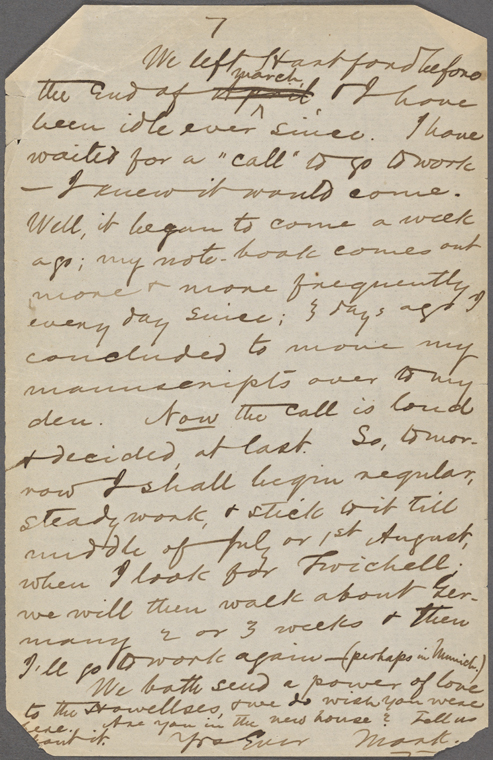 7
We left Hartford before
the end of march & I have
been idle ever since. I have
waited for a "call" to go to work
— I knew it would come.
Well, it began to come a week
ago; my note-book comes out
more & more frequently
every day since; 3 days ago I
concluded to move my
manuscripts over to my
den. Now the call is loud
& decided, at last. So, tomor-
row I shall begin regular,
steady work, & stick to it till
middle of July or 1st August,
when I look for Twichell;
we will then walk about Ger-
many 2 or 3 weeks & then
I'll go to work again — (perhaps in Munich.)
We both send a power of love
to the Howellses, & we do wish you were
here. Are you in the new house? Tell us
about it.
Yrs Ever Mark.